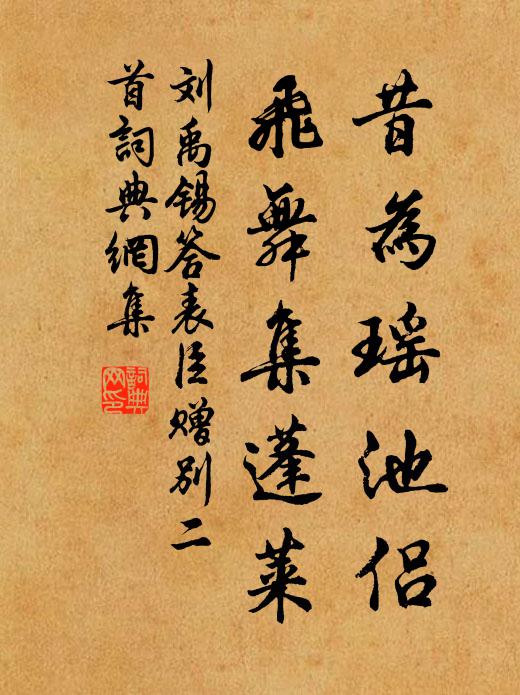 昔為瑤池侣
飛舞集蓬萊
刘禹锡答表臣赠别二
首詞典網集
詞典網印